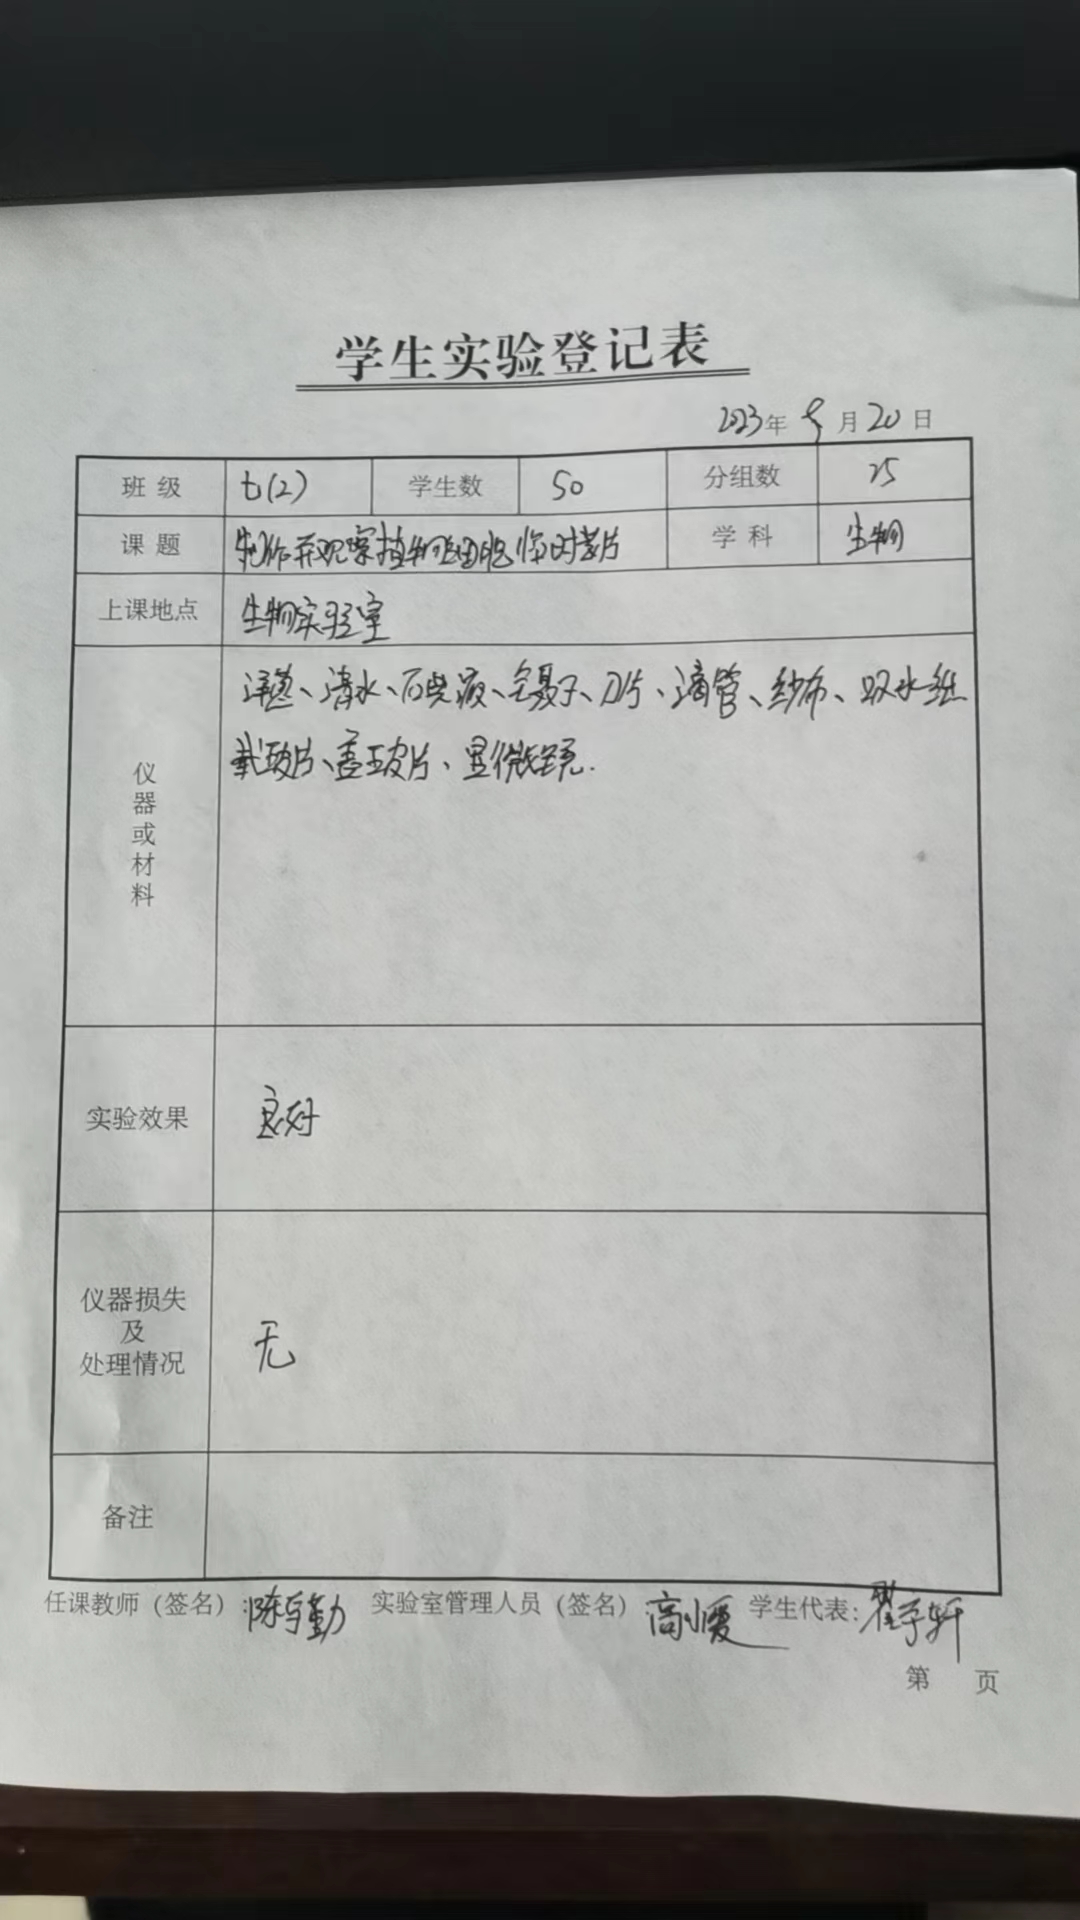 学生实验登记表
2023年 9月20日
班级 七(2) 学生数 50 分组数 25
课题 制作并观察植物细胞临时装片 学科 生物
上课地点 生物实验室
仪器或材料
洋葱、清水、碘液、镊子、刀片、滴管、纱布、吸水纸
载玻片、盖玻片、显微镜.
实验效果 良好
仪器损失
及
处理情况
无
备注
任课教师（签名）: 实验室管理人员（签名）: 学生代表:
第 页